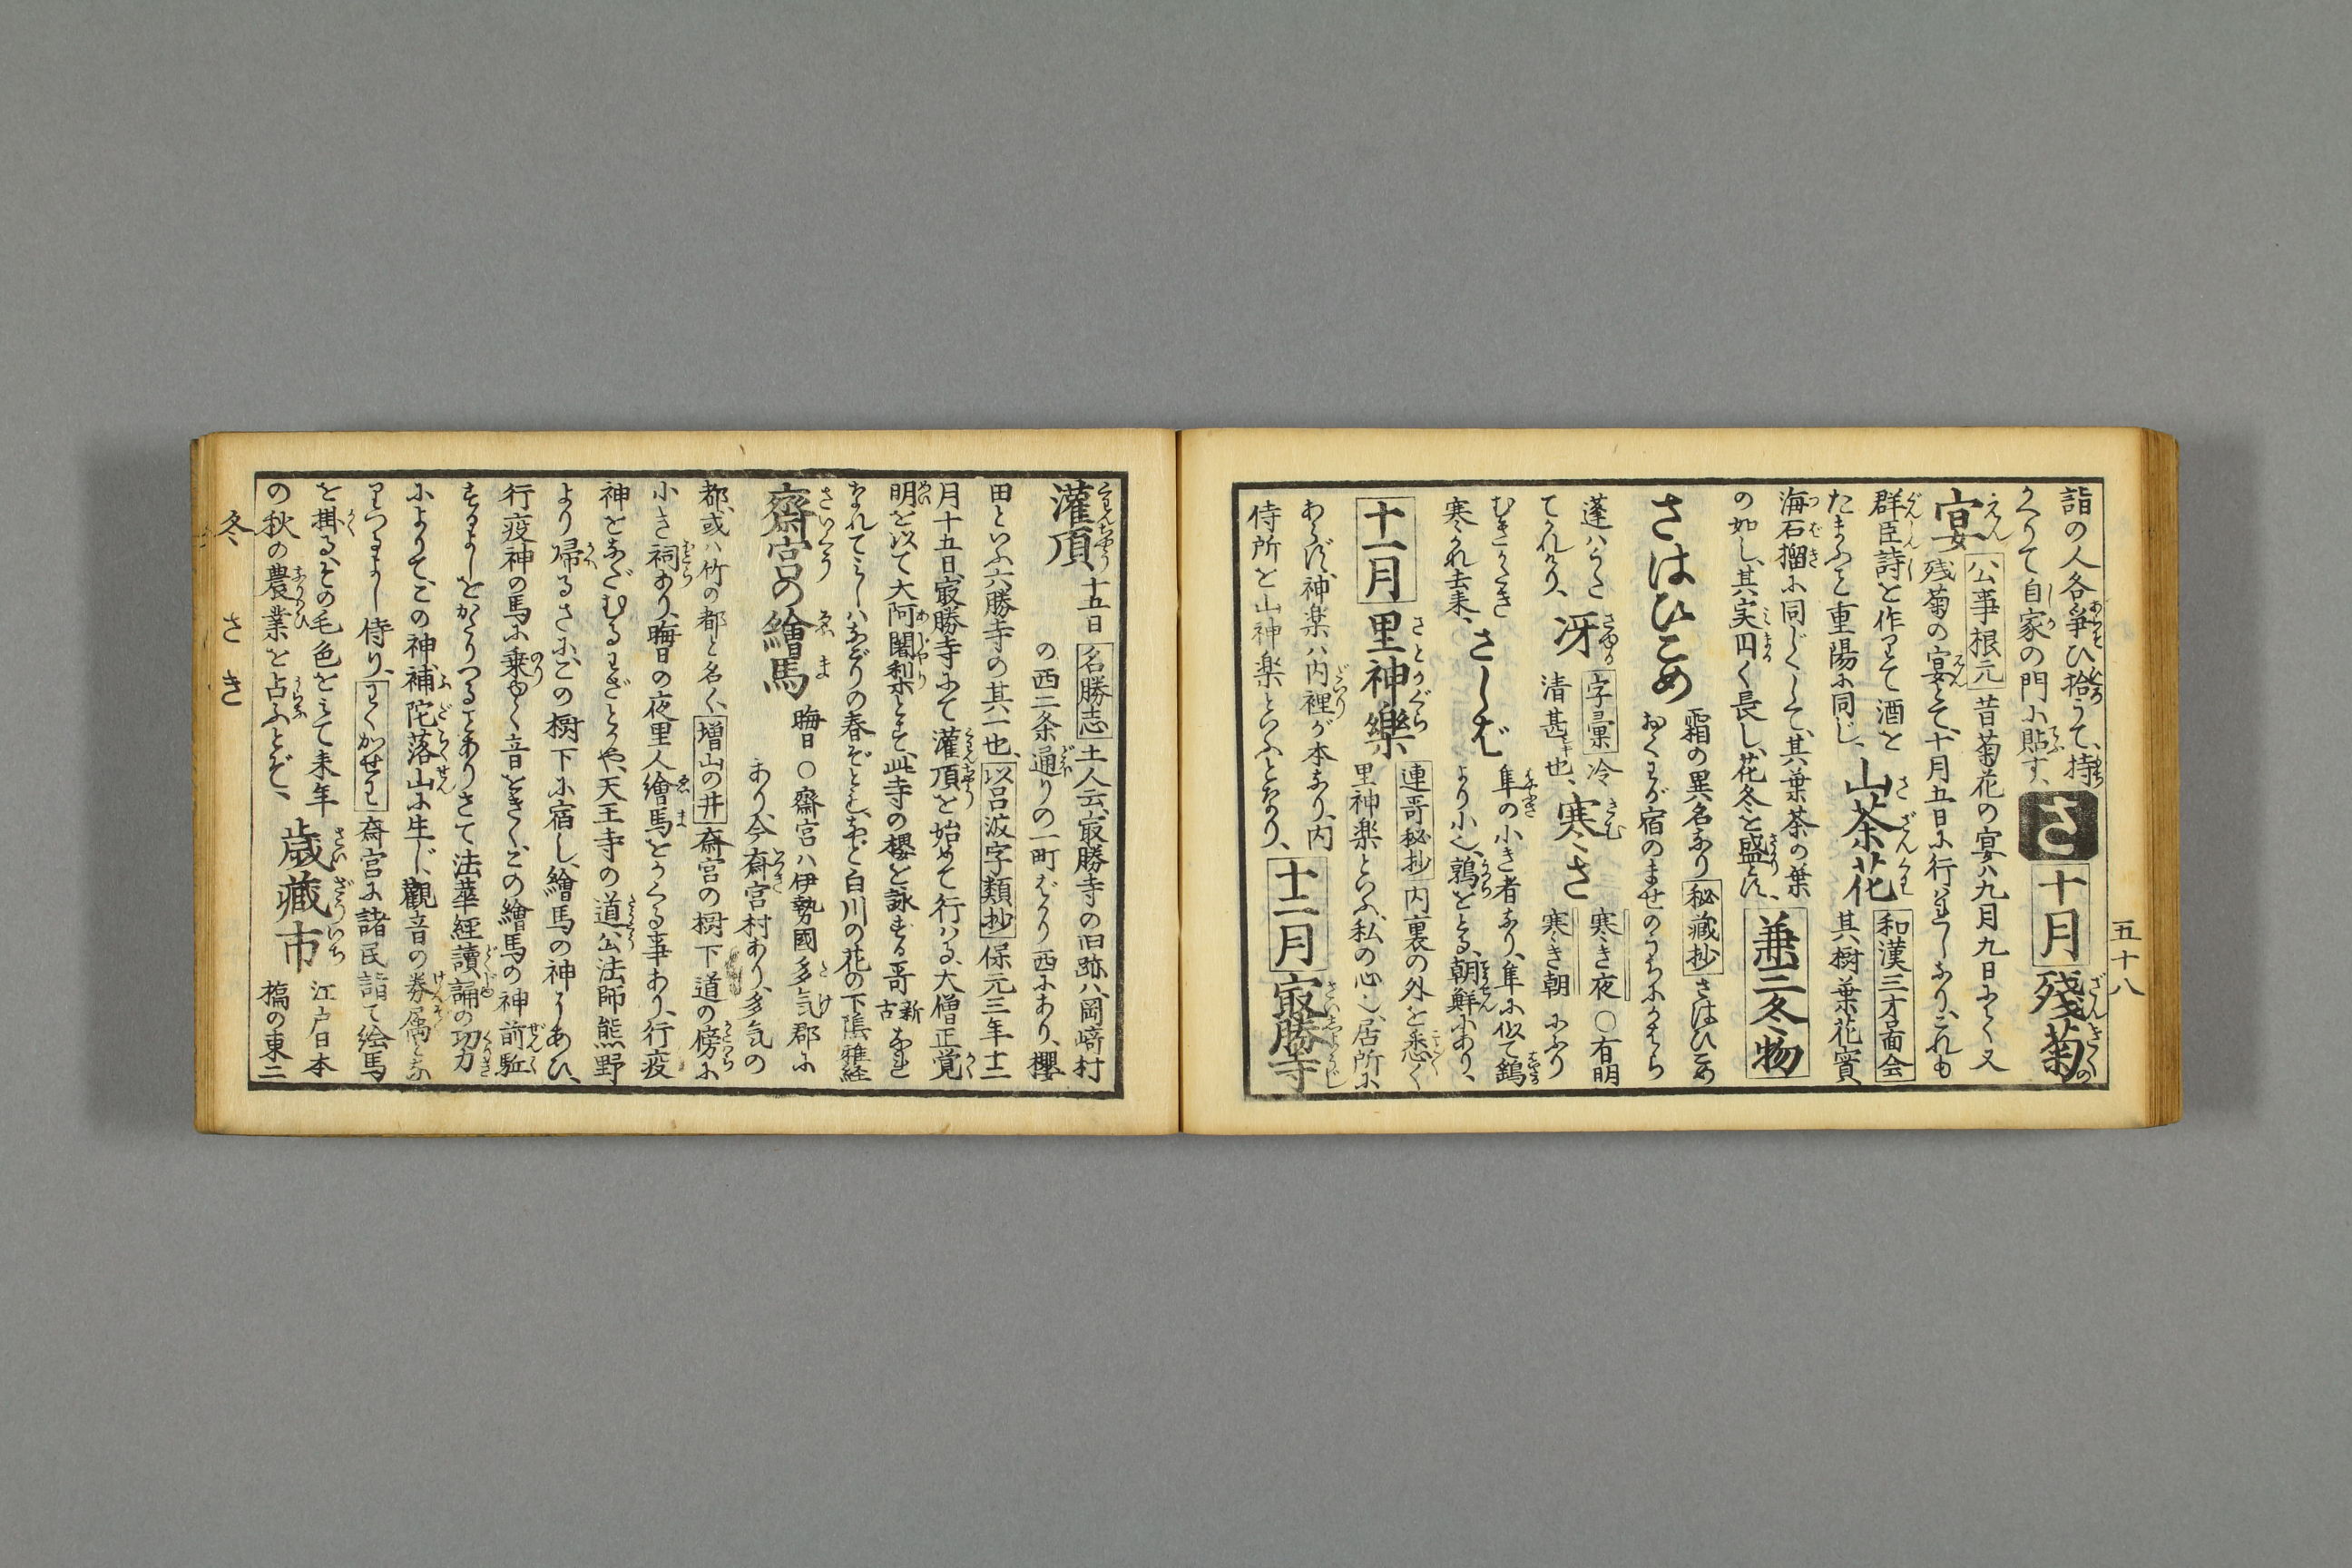 五十八
詣の人各〻爭ひ拾うて、持
かへりて自家の門に貼す、
さ
十月
殘菊の
宴
公事根元
昔菊花の宴ハ九月九日にて又
残菊の宴とて、十月五日に行ハれしなり、これも
群臣詩を作りて酒を
たまふこと重陽に同じ、
山茶花
和漢三才圖会
其樹葉花實、
海石榴に同じくして、其葉茶の葉
の如し、其実円く長し、花冬を盛とす、
兼三冬物
さはひこめ
霜の異名なり
秘蔵抄
さはひこめ
おくわが宿のませのうちにかはら
蓬ハうた
てかれけり、
冴
字彙
冷
清甚キ也、
寒さ
寒き夜
○有明
寒き朝
にふり
むきがたき
寒かれ去来、
さしば
隼の小き者なり、隼に似て鷂
より小也、鶉をとる、朝鮮にあり、
十一月
里神樂
連哥秘抄
内裏の外を悉く
里神楽といふ、私の心也、居所に
あらず、神楽ハ内裡が本なり、内
侍所を山神楽といふとなり、
十二月
㝡勝寺
灌頂
十五日
名勝志
土人云、㝡勝寺の旧跡ハ、岡﨑村
の西二条通りの一町ばかり西にあり、櫻
田といふ六勝寺の其一也、
以呂波字類抄
保元三年十二
月十五日、㝡勝寺にて灌頂を始めて行ハる、大僧正覚
明を以て大阿闍梨とす、此寺の櫻を詠ずる哥
新古
なれ
なれてミしハなごりの春ぞともなど白川の花の下陰雅経
齋宮の繪馬
晦日○齋宮ハ伊勢國多気郡に
あり、今齋宮村あり、多気の
都、或ハ竹の都と名く、
増山の井
齋宮の樹下道の傍に
小き祠あり、晦日の夜里人繪馬をかくる事あり、行疫
神をなだむるわざとかや、天王寺の道公法師熊野
より帰るさに、この樹下に宿し、繪馬の神にあひ、
行疫神の馬に乗ゆく音をきく、この繪馬の神前駈
するよしをかたりつることありさて法華經讀誦の功力
によりて、この神補陀落山に生じ、觀音の眷属となり
りつるよし侍り、
わくかせわ
齋宮に諸民詣て絵馬
を掛る、その毛色をみて来年
の秋の農業を占ふとぞ、
歳藏市
江戸日本
橋の東二
冬　さき